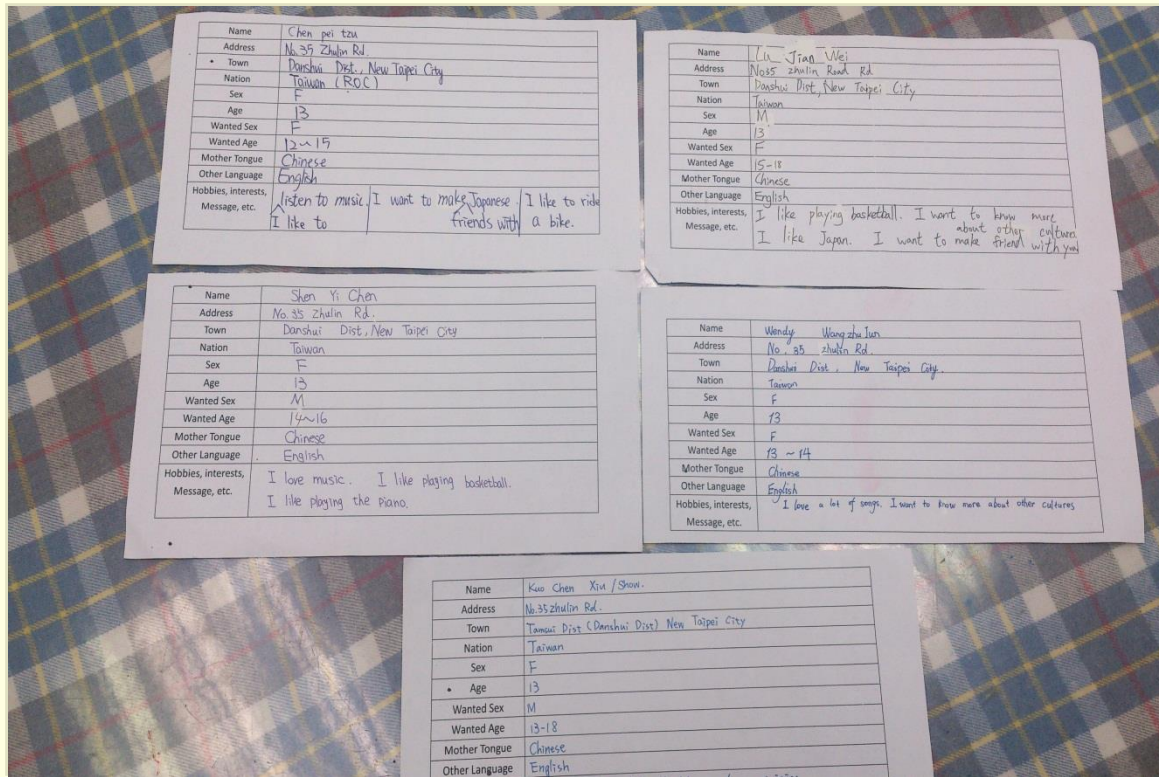 Name Chen pei tzu
Address No.35 Zhulin Rd.
Town Danshui Dist., New Taipei City
Nation Taiwan (ROC)
Sex F
Age 13
Wanted Sex F
Wanted Age 12~15
Mother Tongue Chinese
Other Language English
Hobbies, interests, listen to music. I want to make Japanese. I like to ride
Message, etc. I like to friends with a bike.
Name Lu Jian Wei
Address No35 zhulin Road Rd
Town Danshui Dist, New Taipei City
Nation Taiwan
Sex M
Age 13
Wanted Sex F
Wanted Age 15-18
Mother Tongue Chinese
Other Language English
Hobbies, interests, I like playing basketball. I want to know more
about other culture.
Message, etc. I like Japan. I want to make friend with you
Name Shen Yi Chen
Address No.35 Zhulin Rd.
Town Danshui Dist, New Taipei City
Nation Taiwan
Sex F
Age 13
Wanted Sex M
Wanted Age 14~16
Mother Tongue Chinese
Other Language English
Hobbies, interests, I love music. I like playing basketball.
Message, etc. I like playing the piano.
Name Wendy Wang zhu Jun
Address No. 35 zhulin Rd.
Town Danshui Dist, New Taipei City.
Nation Taiwan
Sex F
Age 13
Wanted Sex F
Wanted Age 13 ~ 14
Mother Tongue Chinese
Other Language English
Hobbies, interests, I love a lot of songs. I want to know more about other cultures
Message, etc.
Name Kuo Chen Xiu / Show.
Address No.35 zhulin Rd.
Town Tamsui Dist (Danshui Dist) New Taipei City
Nation Taiwan
Sex F
Age 13
Wanted Sex M
Wanted Age 13-18
Mother Tongue Chinese
Other Language English